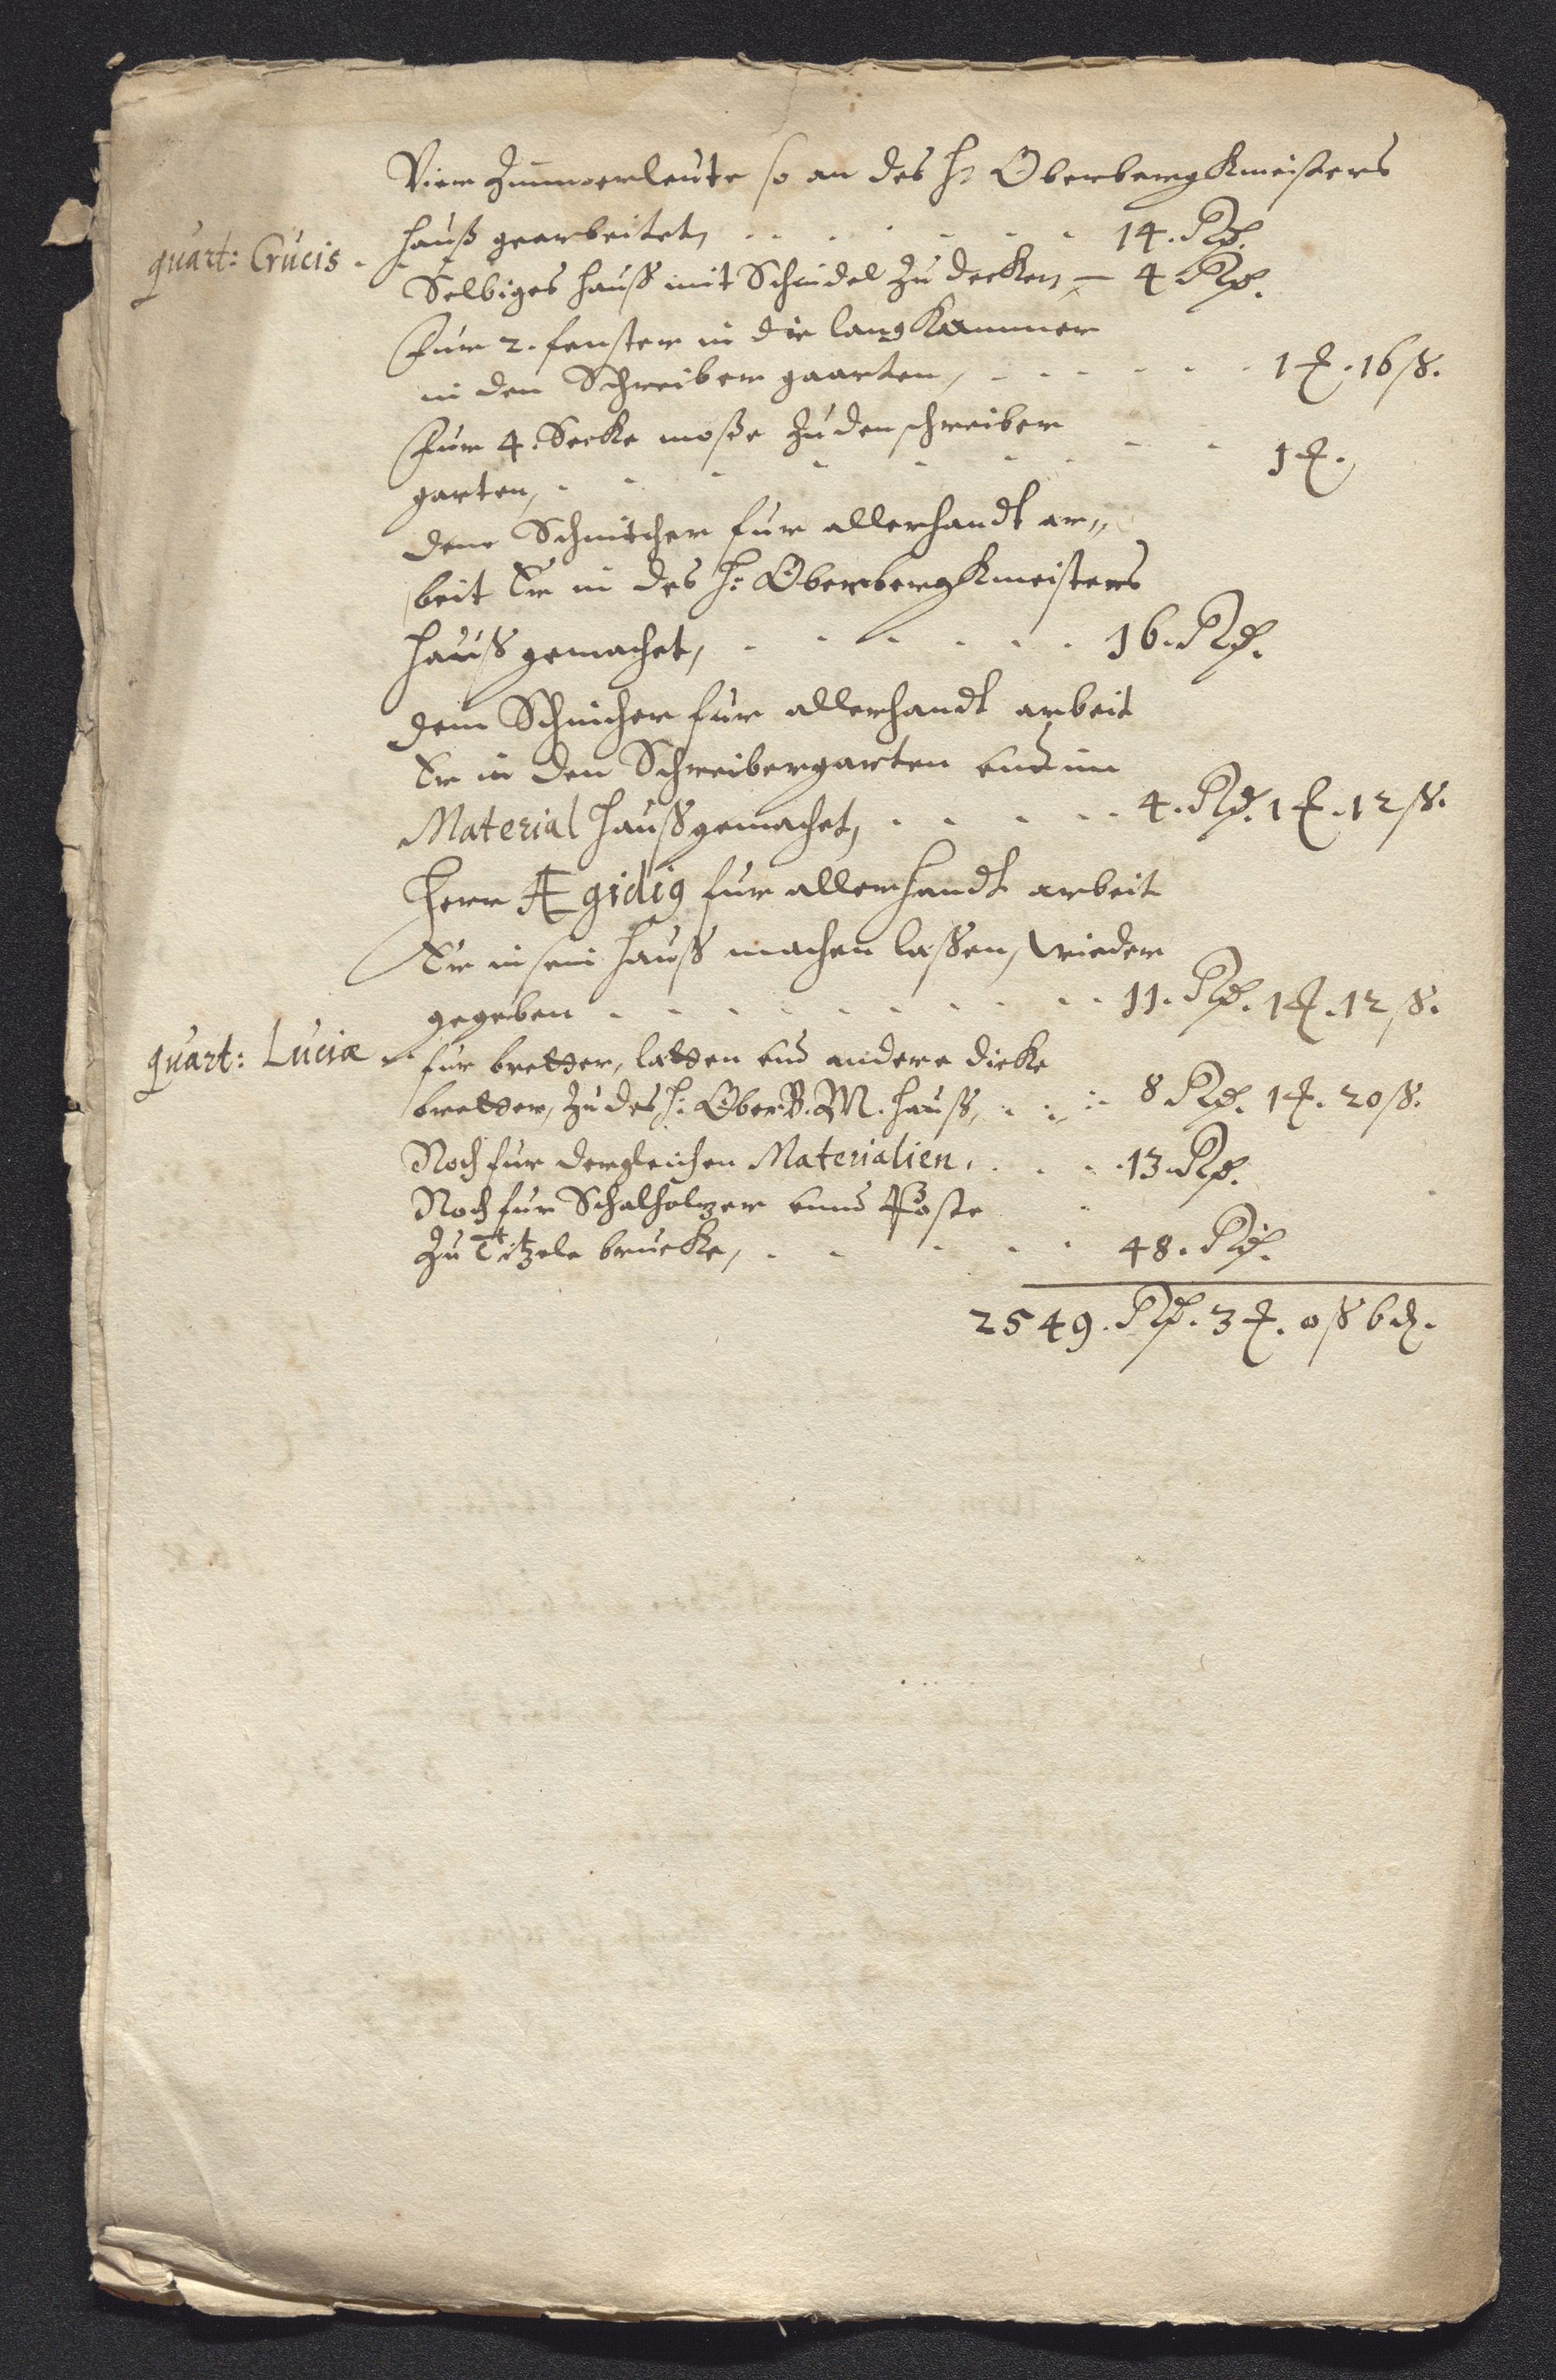 Vier Zimmerleute so an des H: Oberbergkmeisters
quart: Crucis. hauß gearbeitet, . . . . . . 14. Rd.
Selbiges hauß mit Schindel Zu decken, — 4 Rd.
Fur 2. fenster in die lang Kammer
in den Schreiber gaarten, . . . . . . 1 ℳ. 16 ß.
Fur 4. Secke moße Zu den schreiber
garten, . . . . . . . . 1 ℳ.
dem Schnitcher fur allerhandt ar„
beit Er in des H: Oberbergkmeisters
hauß gemachet, . . . . . . 16. Rd.
dem Schnicher fur allerhandt arbeit
Er in den Schreibergarten und im
Material hauß gemachet, . . . . . 4. Rd. 1 ℳ. 12 ß.
Herr Ægidig fur allerhandt arbeit
Er in sein hauß machen lassen, wieder
gegeben . . . . . . . . 11. Rd. 1 ℳ. 12 ß.
quart: Luciæ . fur bretter, latten und andere dicke
bretter, Zu des H: Ober B. M. hauß, . . . 8 Rd. 1 ℳ. 20 ß.
Noch fur dergleichen Materialien. . . . . 13. Rd.
Noch fur Schalholzer unnd Poste
Zu Titzele brucke, . . . . . 48. Rd.
2549. Rd. 3 ℳ. 0 ß 6 ₰.